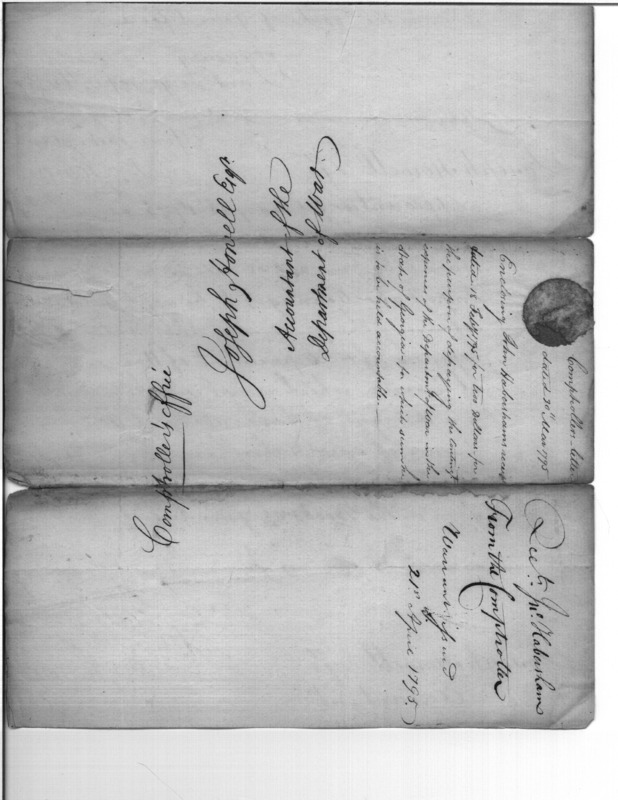 Comptroller's letter
dated 30 Mar 1795
Enclosing John Habersham's receipt
dated 18 Feby 1795 for two Dollars for
the purpose of defraying the contingt
expences of the Department of War in the
State of Georgia for which sum he
is to be held accountable.
Joseph Howell Esqr.
Accountant of the
Department of War.
Comptroller's office
Jno. Habersham
From the Comptroller
Warrant issued
21st April 1795.